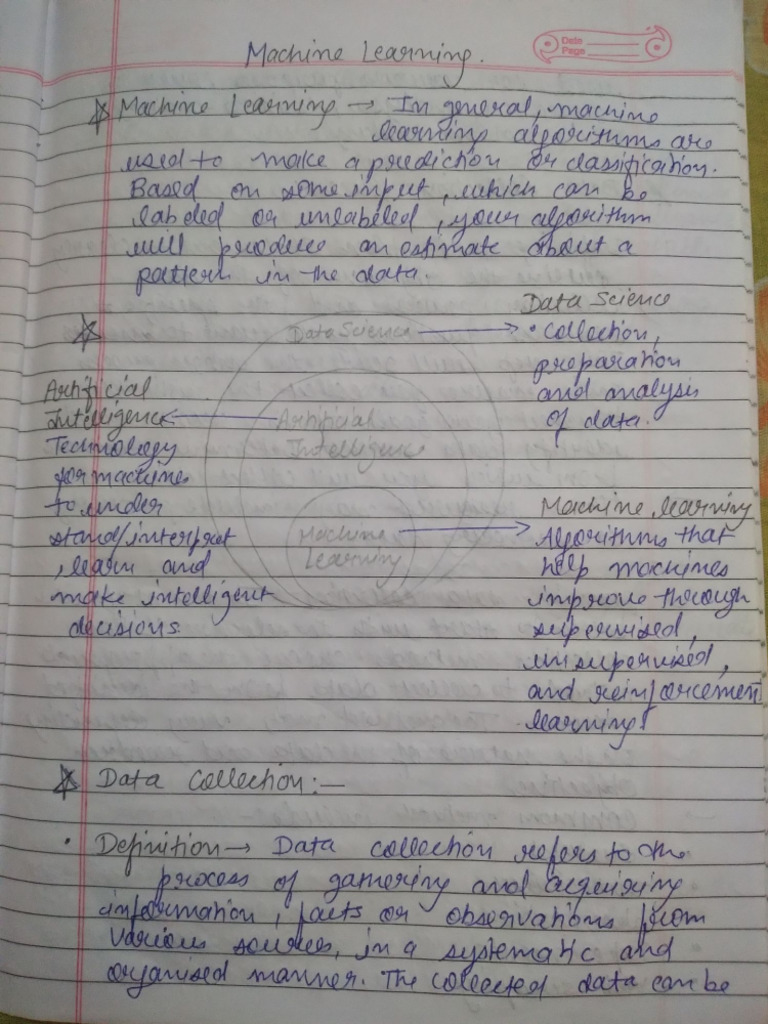 Machine Learning.
Date
Page
Machine Learning → In general, machine
learning algorithms are
used to make a prediction or classification.
Based on some input, which can be
labeled or unlabeled, your algorithm
will produce an estimate about a
pattern in the data.
Data Science
Data Science → • Collection,
preparation
and analysis
of data.
Artificial
Intelligence ← Artificial
Intelligence
Technology
for machines
to under
stand/interpret
, learn and
make intelligent
decisions.
Machine
Learning →
Machine learning
Algorithms that
help machines
improve through
supervised,
unsupervised,
and reinforcement
learning.
Data Collection :—
• Definition → Data collection refers to the
process of gathering and acquiring
information, facts or observations from
various sources, in a systematic and
organised manner. The collected data can be